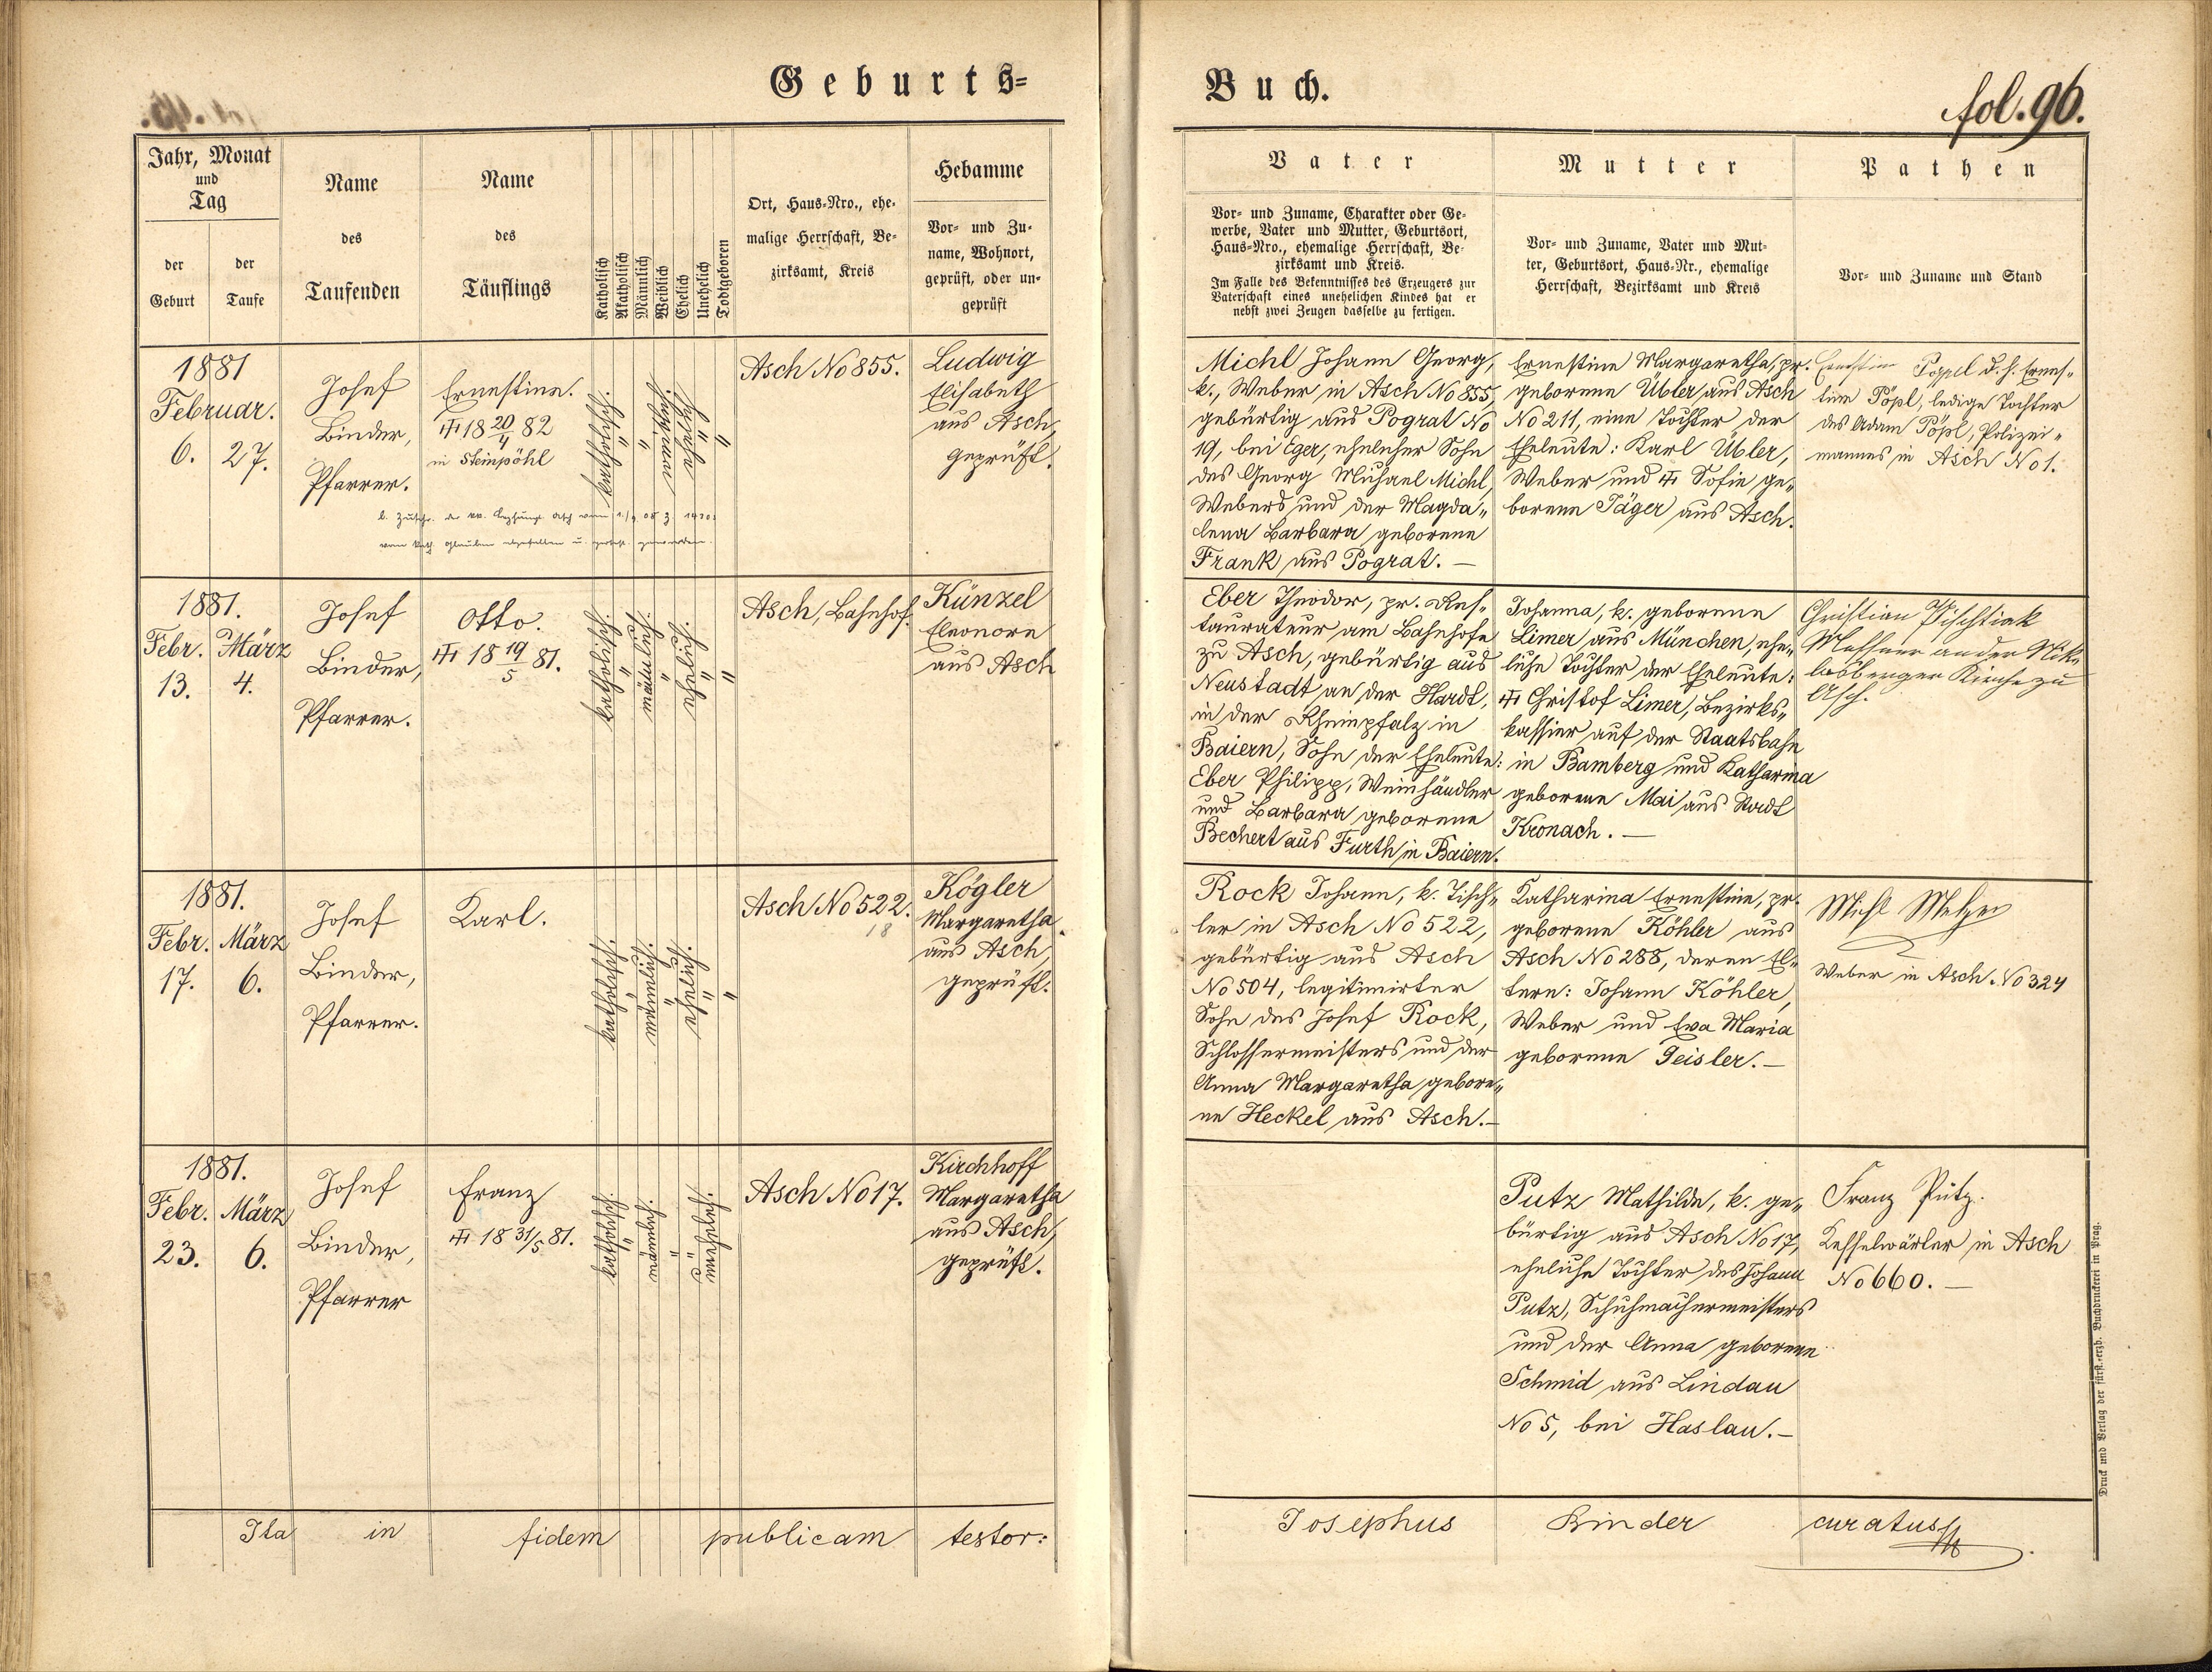 Geburts=
Buch.
fol. 96.
Jahr, Monat
und
Tag
der
Geburt
der
Taufe
Name
des
Taufenden
Name
des
Täuflings
Katholisch
Akatholisch
Männlich
Weiblich
Ehelich
Unehelich
Todtgeboren
Ort, Haus-Nro., ehe-
malige Herrschaft, Be-
zirksamt, Kreis
Hebamme
Vor- und Zu-
name, Wohnort,
geprüft, oder un-
geprüft
Vater
Vor- und Zuname, Charakter oder Ge-
werbe, Vater und Mutter, Geburtsort,
Haus-Nro., ehemalige Herrschaft, Be-
zirksamt und Kreis.
Im Falle des Bekenntnisses des Erzeugers zur
Vaterschaft eines unehelichen Kindes hat er
nebst zwei Zeugen dasselbe zu fertigen.
Mutter
Vor- und Zuname, Vater und Mut-
ter, Geburtsort, Haus-Nr., ehemalige
Herrschaft, Bezirksamt und Kreis
Pathen
Vor- und Zuname und Stand
1881
Februar.
6. 27.
Josef
Binder,
Pfarrer.
Ernestine.
18 20/4 82
in Steinpöhl
katholisch.
"
"
weiblich.
ehelich
"
"
Asch No 855.
Ludwig
Elisabeth
aus Asch,
geprüft.
Michl Johann Georg,
k., Weber in Asch No 855,
gebürtig aus Pograt No
19, bei Eger, ehelicher Sohn
des Georg Michael Michl,
Webers und der Magda„
lena Barbara geborene
Frank aus Pograt. —
Ernestine Margaretha, pr.
geborene Übler aus Asch
No 211, eine Tochter der
Eheleute: Karl Übler,
Weber und Sofie ge„
borene Jäger aus Asch.
Ernestine Pöpel d. h. Ernes-
tine Pöpl, ledige Tochter
des Adam Pöpl, Polizei„
mannes in Asch No 1.
1881.
Febr. März
13. 4.
Josef
Binder,
Pfarrer.
Otto.
18 19/5 81.
katholisch.
"
männlich.
"
ehelich.
"
"
Asch, Bahnhof.
Künzel
Eleonore
aus Asch
Eber Theodor, pr. Res„
taurateur am Bahnhofe
zu Asch, gebürtig aus
Neustadt an der Hardt,
in der Rheinpfalz in
Baiern, Sohn der Eheleute:
Eber Philipp, Weinhändler
und Barbara geborene
Bechert aus Furth in Baiern.
Johanna, k. geborene
Limer aus München, ehe„
liche Tochter der Eheleute:
Christof Limer, Bezirks„
kassier auf der Staatsbahn
in Bamberg und Katharina
geborene Mai aus Stadt
Kronach. —
Christian Pischtiak
Messner an der Nik
lasberger Kirche zu
Asch.
1881.
Febr. März
17. 6.
Josef
Binder,
Pfarrer.
Karl.
katholisch.
"
männlich.
"
ehelich.
"
"
Asch No 522.
18
Kögler
Margaretha
aus Asch,
geprüft.
Rock Johann, k. Tisch„
ler in Asch No 522,
gebürtig aus Asch
No 504, legitimirter
Sohn des Josef Rock,
Schlossermeisters und der
Anna Margaretha gebore„
ne Heckel aus Asch.—
Katharina Ernestine, pr.
geborene Köhler aus
Asch No 288, deren El„
tern: Johann Köhler,
Weber und Eva Maria
geborene Geisler.—
Michl
Weber in Asch No 324
1881.
Febr. März
23. 6.
Josef
Binder,
Pfarrer
Franz
18 31/5 81.
katholisch.
"
männlich.
"
"
unehelich.
Asch No 17.
Kirchhoff
Margaretha
aus Asch,
geprüft.
Putz Mathilde, k. ge„
bürtig aus Asch No 17,
eheliche Tochter des Johann
Putz, Schuhmachermeisters
und der Anna geborene
Schmid aus Lindau
No 5, bei Haslau.—
Franz Putz.
Kesselwärter in Asch
No 660. —
Ita in fidem publicam testor:
Josephus Binder curatus
Druck und Verlag der fürst.-erzb. Buchdruckerei in Prag.